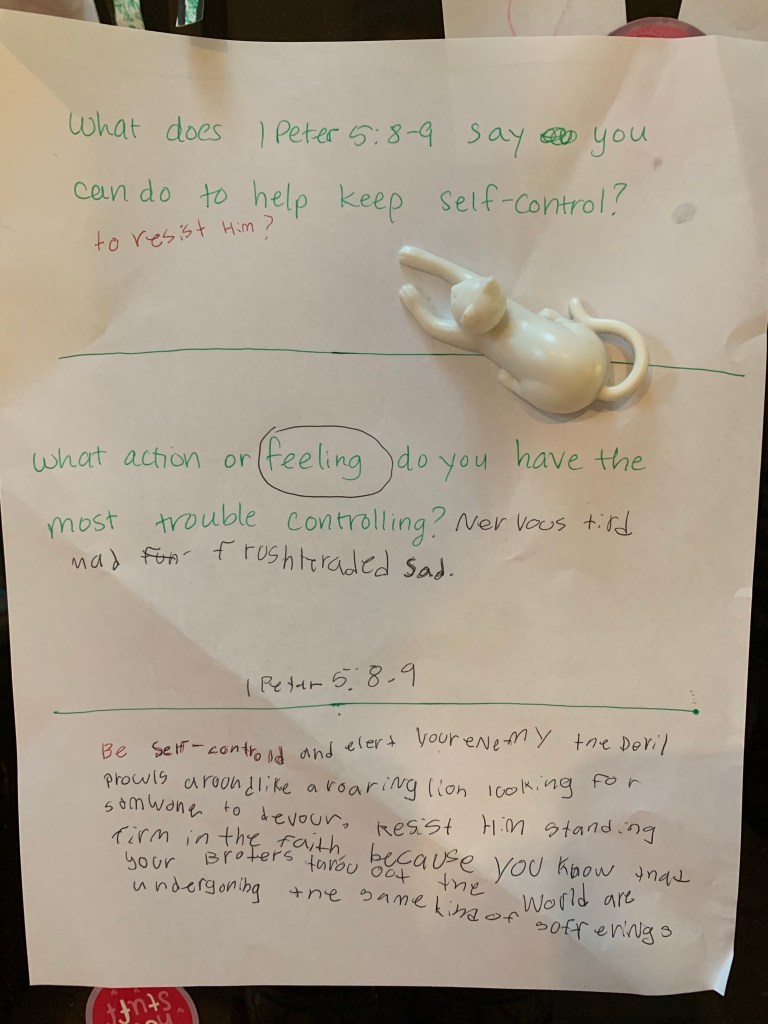 What does 1 Peter 5:8-9 say you
can do to help keep self-control?
to resist Him?
What action or feeling do you have the
most trouble controlling? Nervous tird
mad fun- frushteraded sad.
1 Peter 5:8-9
Be self-controld and elert Your enemy the Devil
prowls aroond like a roaring lion looking for
somwone to devour, Resist Him standing
firm in the faith, because you know that
your Broters throo oot the World are
undergoning the same kind of sofferings